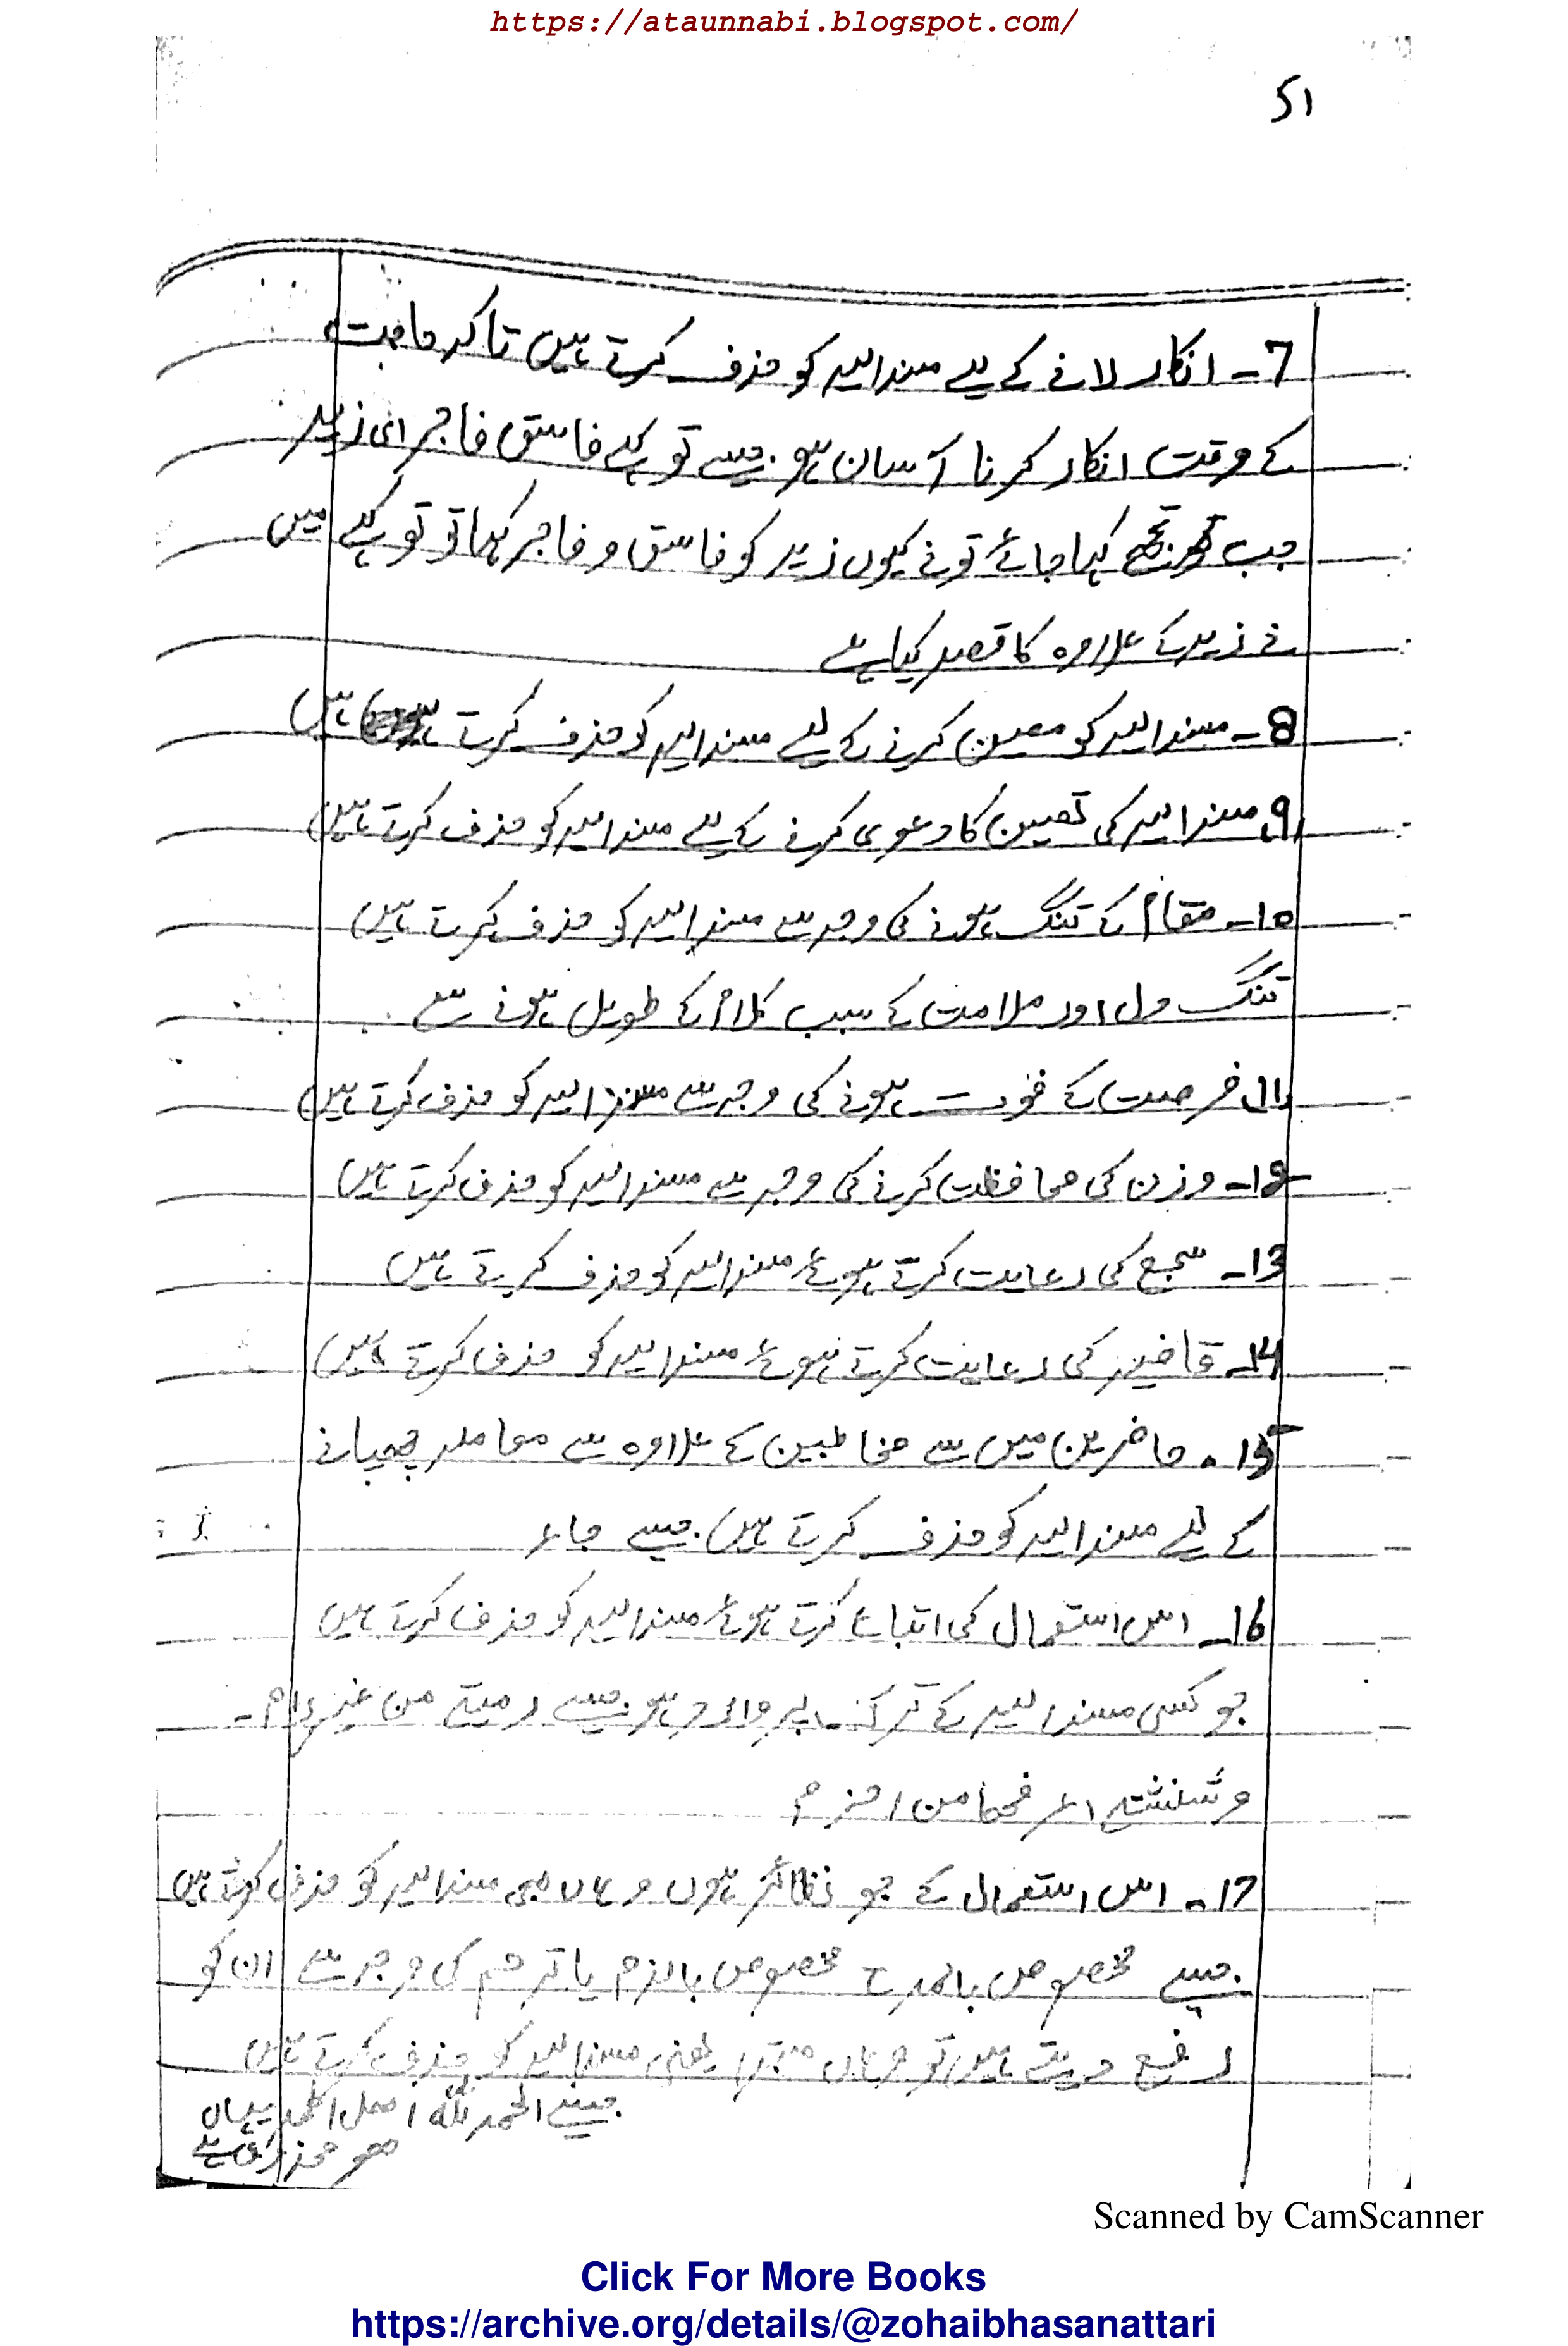 https://ataunnabi.blogspot.com/
51
7- انکار لانے کے لیے مسندالیہ کو حذف کرتے ہیں تاکہ حاجت
کے وقت انکار کرنا آسان ہو. جیسے تو کہے فاسق فاجر ای زید
جب تجھے کہا جائے تو نے کیوں زید کو فاسق و فاجر کہا تو تو کہے میں
نے زید کے علاوہ کا قصد کیا ہے
8- مسندالیہ کو معین کرنے کے لیے مسندالیہ کو حذف کرتے ہیں
9. مسندالیہ کی تعیین کا دعوی کرنے کے لیے مسندالیہ کو حذف کرتے ہیں
10- مقام کے تنگ ہونے کی وجہ سے مسندالیہ کو حذف کرتے ہیں
تنگ دل اور ملامت کے سبب کلام کے طویل ہونے سے
11. فرصت کے فوت ہونے کی وجہ سے مسندالیہ کو حذف کرتے ہیں
12- وزن کی محافظت کرنے کی وجہ سے مسندالیہ کو حذف کرتے ہیں
13- سجع کی رعایت کرتے ہوئے مسندالیہ کو حذف کرتے ہیں
14- قافیہ کی رعایت کرتے ہوئے مسندالیہ کو حذف کرتے ہیں
15. حاضرین میں سے مخاطبین کے علاوہ سے معاملہ چھپانے
کے لیے مسندالیہ کو حذف کرتے ہیں. جیسے جاء
16- اس استعمال کی اتباع کرتے ہوئے مسندالیہ کو حذف کرتے ہیں
جو کسی مسندالیہ کے ترک پر وارد ہو. جیسے رمیۃ من غیر رام-
و شنشنۃ من اخزم
17- اس استعمال کے جو نظائر ہوں وہاں بھی مسندالیہ کو حذف کرتے ہیں
جیسے مخصوص بالمدح مخصوص بالذم یا ترحم کی وجہ سے ان کو
رفع دیتے ہیں تو وہاں مبتدا یعنی مسندالیہ کو حذف کرتے ہیں
جیسے الحمد للہ اھل الحمد یہاں
ھو محذوف ہے
Scanned by CamScanner
Click For More Books
https://archive.org/details/@zohaibhasanattari